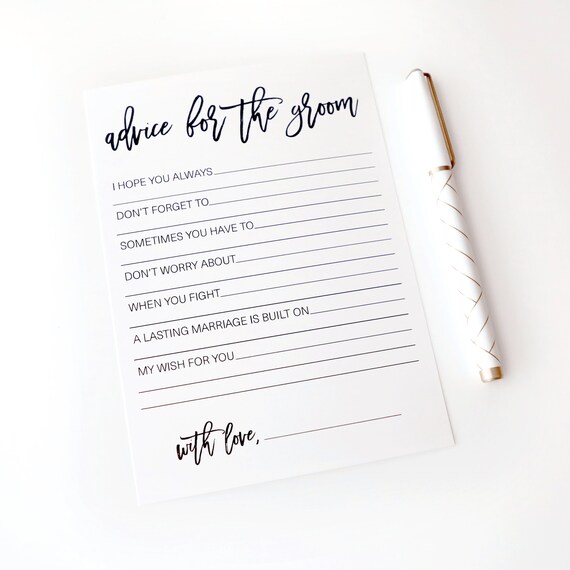 advice for the groom
I HOPE YOU ALWAYS
DON'T FORGET TO
SOMETIMES YOU HAVE TO
DON'T WORRY ABOUT
WHEN YOU FIGHT
A LASTING MARRIAGE IS BUILT ON
MY WISH FOR YOU
with love,